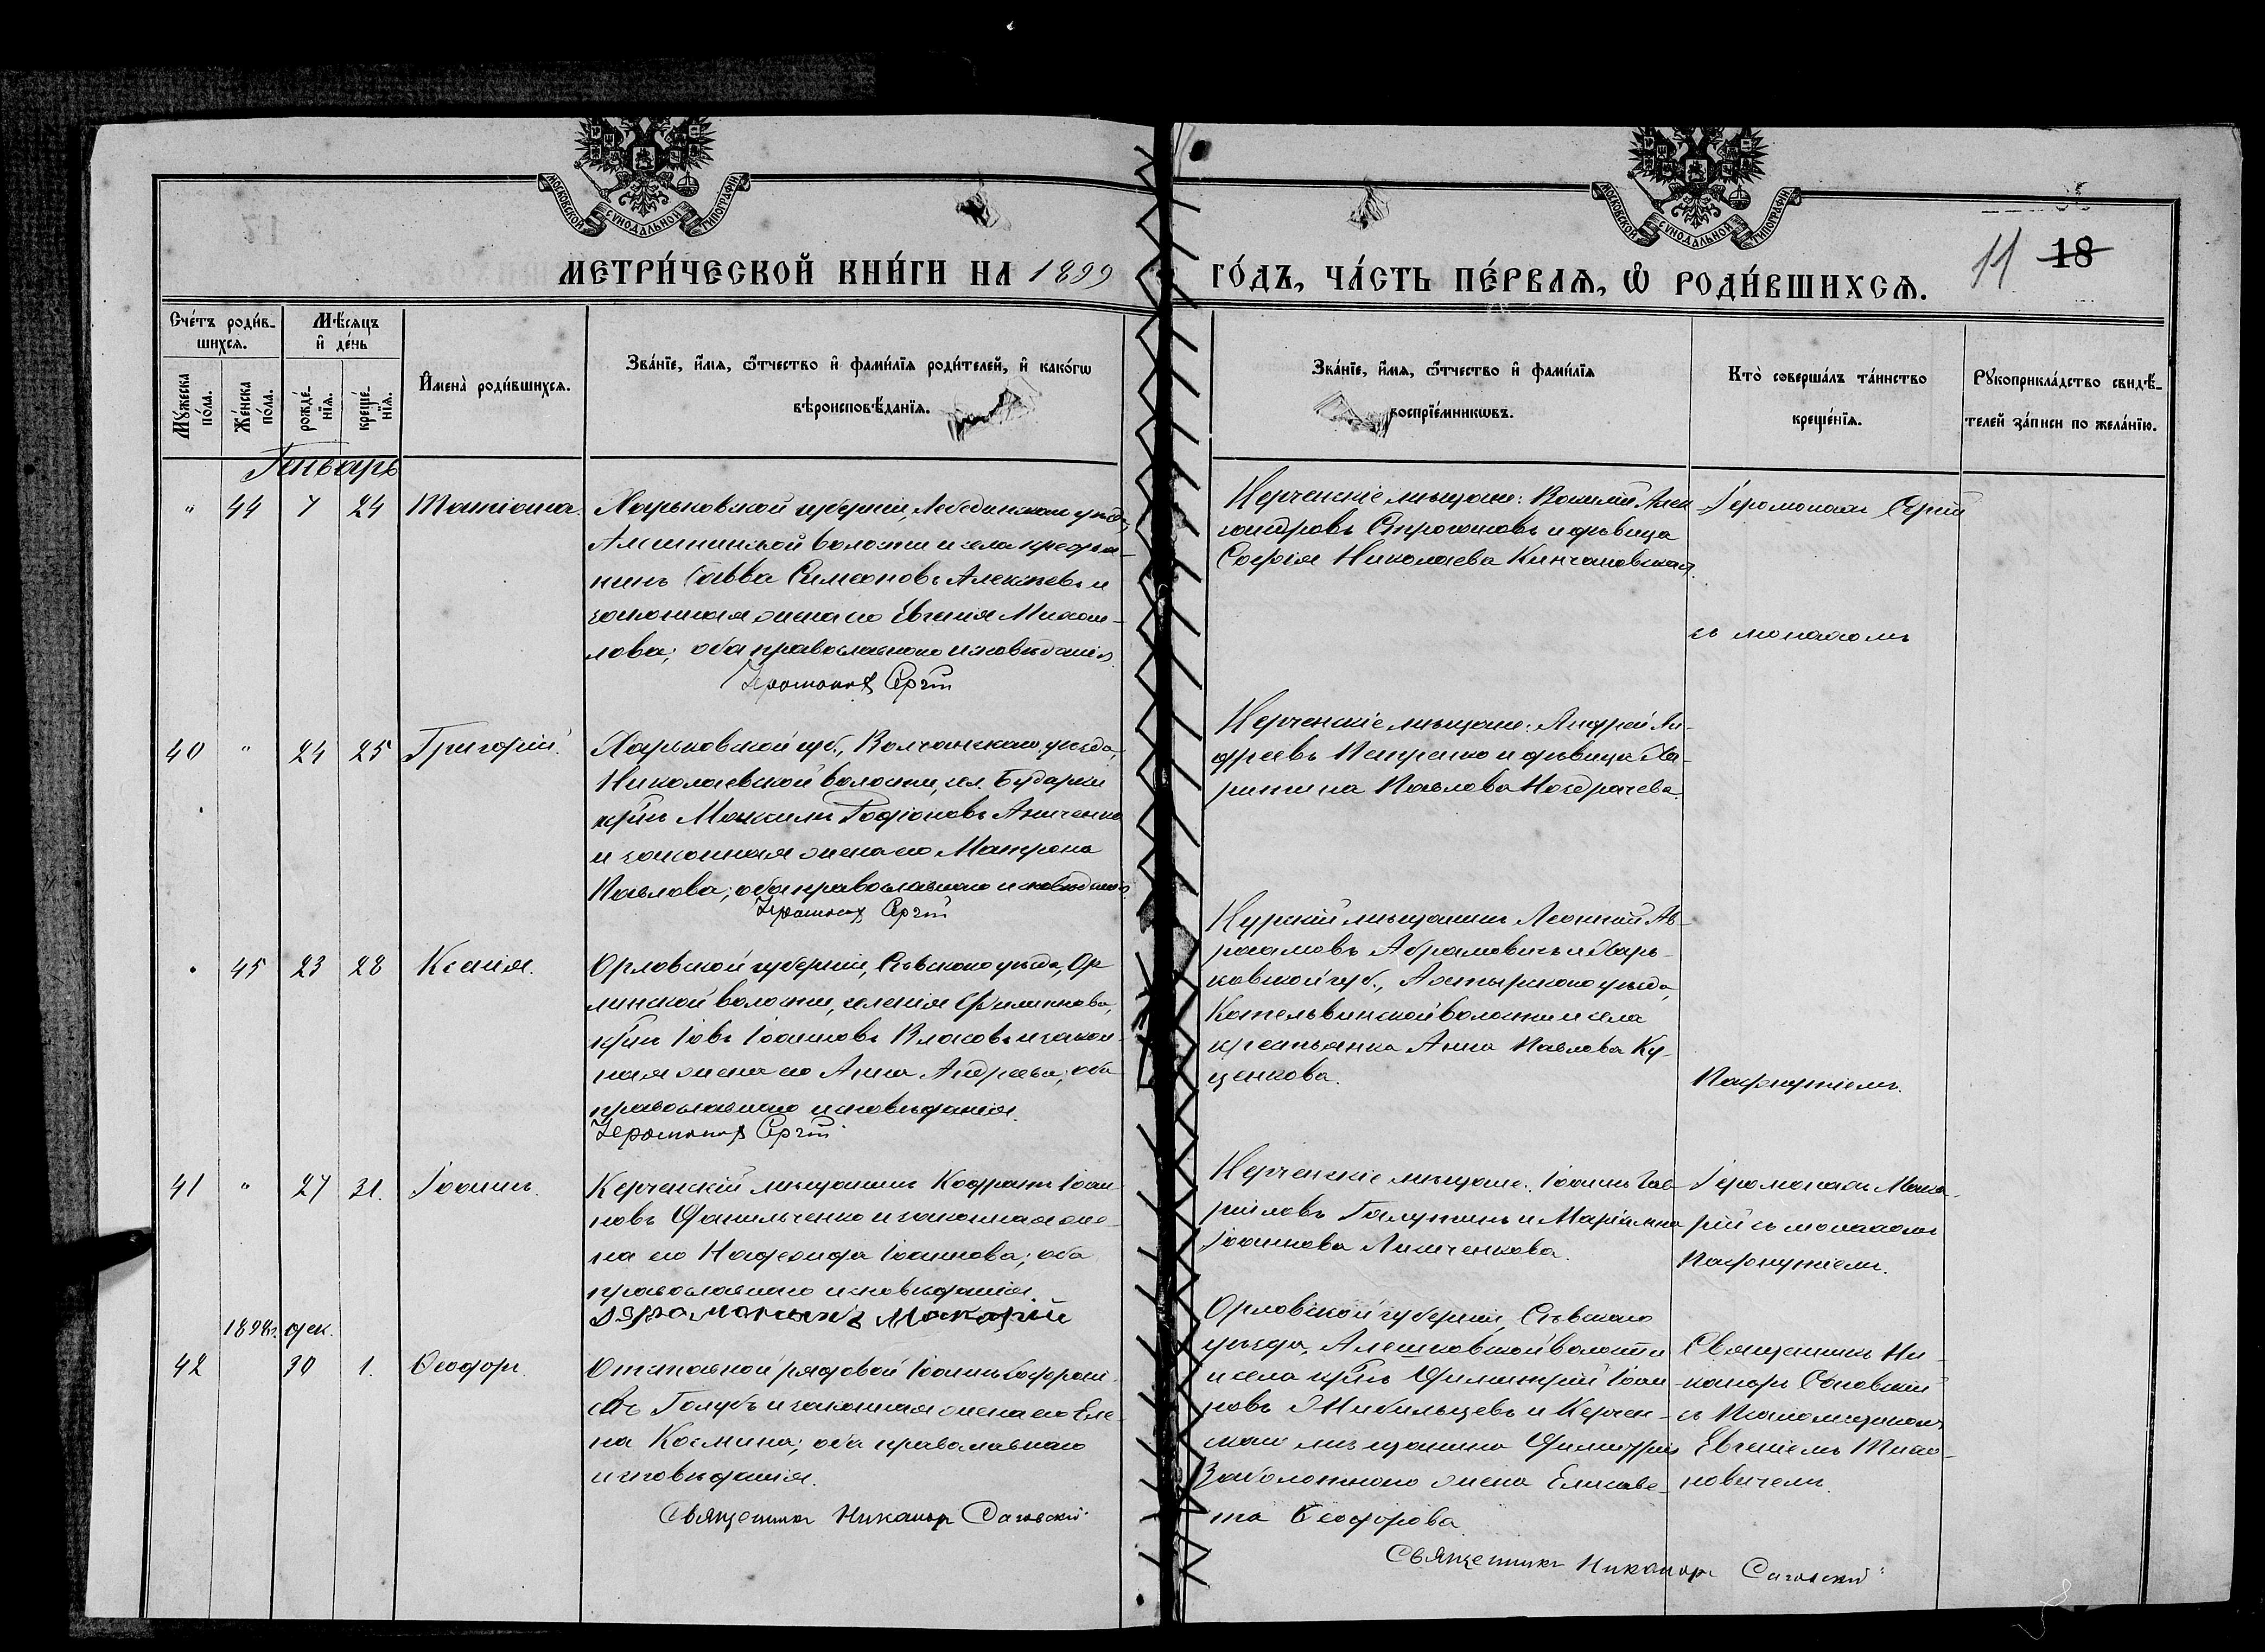 МОСКОВСКОЙ СѴНОДАЛЬНОЙ ТИПОГРАФІИ
МОСКОВСКОЙ СѴНОДАЛЬНОЙ ТИПОГРАФІИ
МЕТРИ́ЧЕСКОЙ КНИ́ГИ НА 1899
ГО́ДЪ, ЧА́СТЬ ПЕ́РВАѦ, Ѡ РОДИ́ВШИХСѦ.
11 18
Сче́тъ роди́в-
шихсѧ.
Мѣ́сѧцъ
и҆ де́нь
Мꙋжеска
по́ла.
Же́нска
по́ла.
рожде́-
нїѧ.
креще́-
нїѧ.
И҆мена̀ роди́вшихсѧ.
Зва́нїе, и҆́мѧ, ѻ҆́тчество и҆ фами́лїѧ роди́телей, и҆ како́гѡ
вѣроисповѣ́данїѧ.
Зва́нїе, и҆́мѧ, ѻ҆́тчество и҆ фами́лїѧ
воспрїе́мникѡвъ.
Кто̀ соверша́лъ та́инство
креще́нїѧ.
Рꙋкоприкла́дство свидѣ́-
телей за́писи по жела́нїю.
Генварь
" 44 7 24 Татіана.
Харьковской губерніи, Лебединскаго уѣзда,
волости и села крестья-
нинъ Савва Симеоновъ Алексѣевъ и
законная жена его Евгенія Михаи-
лова; оба православнаго исповѣданія.
Іеромонахъ Сергій
Керченскіе мѣщане: Василій Алек-
сандровъ и дѣвица
Софія Николаева
Іеромонахъ Сергій
съ монахомъ
40 " 24 25 Григорій.
Харьковской губ., Волчанскаго уѣзда,
Николаевской волости, сл. Бударки
кр-нъ Максимъ Родіоновъ Аниченко
и законная жена его Матрона
Павлова; оба православнаго исповѣданія.
Іеромонахъ Сергій
Керченскіе мѣщане: Андрей Ан-
дреевъ Петренко и дѣвица Ха-
ритина Павлова Ноздрачева.
45 23 28 Ксенія.
Орловской губерніи, Сѣвскаго уѣзда, Ор-
линской волости, селенія Филиппова,
кр-нъ Іовъ Іоанновъ Власовъ и закон-
ная жена его Анна Андреева; оба
православнаго исповѣданія.
Іеромонахъ Сергій
Курскій мѣщанинъ Леонтій Ав-
раамовъ Абрамовичъ и Харь-
ковской губ., Ахтырскаго уѣзда,
Котельвинской волости и села
крестьянка Анна Павлова Ку-
ценкова.
Пафнутіемъ.
41 " 27 31. Іоаннъ.
Керченскій мѣщанинъ Кодратъ Іоан-
новъ Данильченко и законная же-
на его Надежда Іоаннова; оба
православнаго исповѣданія.
Іеромонахъ Макарій
Керченскіе мѣщане: Іоаннъ Гав-
риловъ Галушинъ и Маріамна
Іоаннова
Іеромонахъ Мака-
рій съ монахомъ
Пафнутіемъ.
1898г. дек.
42 30 1. Ѳеодоръ.
Отставной рядовой Іоаннъ
Голубъ и законная жена его Еле-
на Космина; оба православнаго
исповѣданія.
Священникъ Никаноръ
Орловской губерніи, Сѣвскаго
уѣзда, Алешковской волости
и села кр-нъ Димитрій Іоан-
новъ и Керчен-
скаго мѣщанина Димитрія
Заболотнаго жена Елисаве-
та Ѳеодорова.
Священникъ Ни-
каноръ
съ Псаломщикомъ
Евгеніемъ
новичемъ.
Священникъ Никаноръ